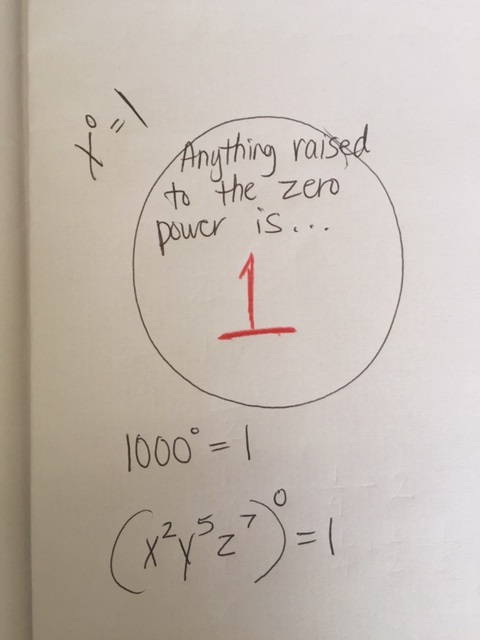 x⁰ = 1
Anything raised
to the zero
power is...
1
1000⁰ = 1
(x²y⁵z⁷)⁰ = 1